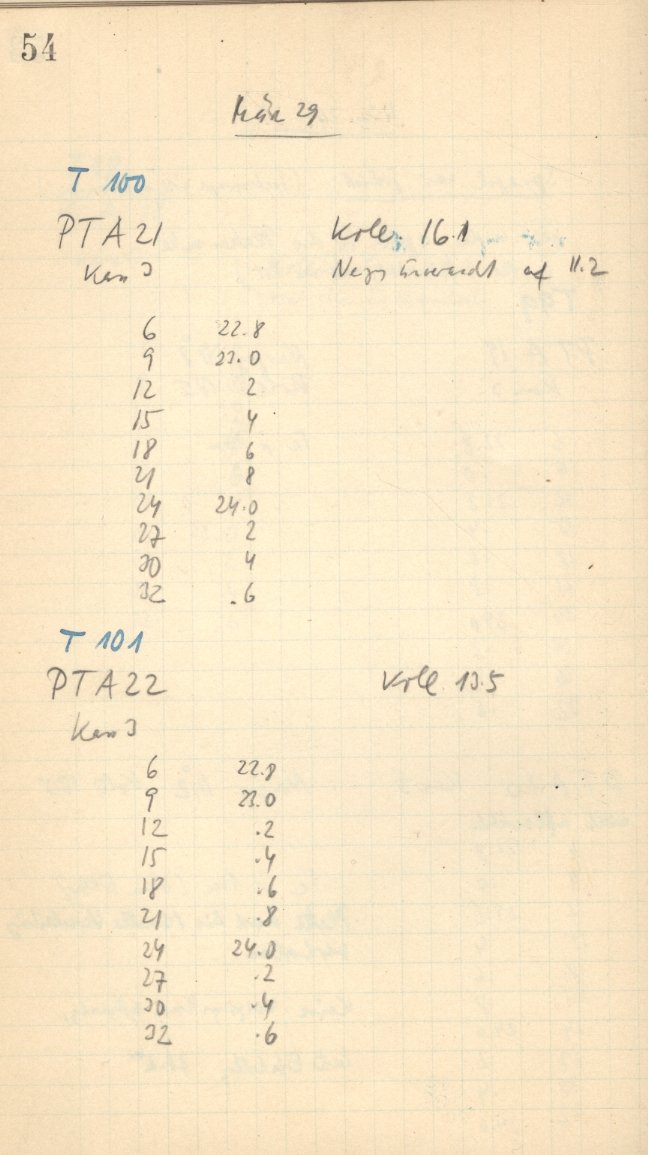 54
März 29
T 100
PTA21 Koll. 16.1
Kam 3 Neg auf 11.2
6 22.8
9 23.0
12 2
15 4
18 6
21 8
24 24.0
27 2
30 4
32 .6
T 101
PTA22 Koll 13.5
Kam 3
6 22.8
9 23.0
12 .2
15 .4
18 .6
21 .8
24 24.0
27 .2
30 .4
32 .6